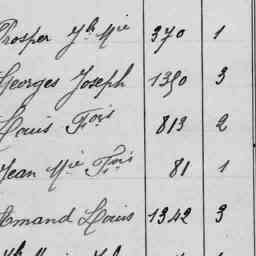 Prosper Jh Mie 370 1
Georges Joseph 1390 3
Louis Fois 813 2
Jean Mie Fois 81 1
Armand Louis 1342 3